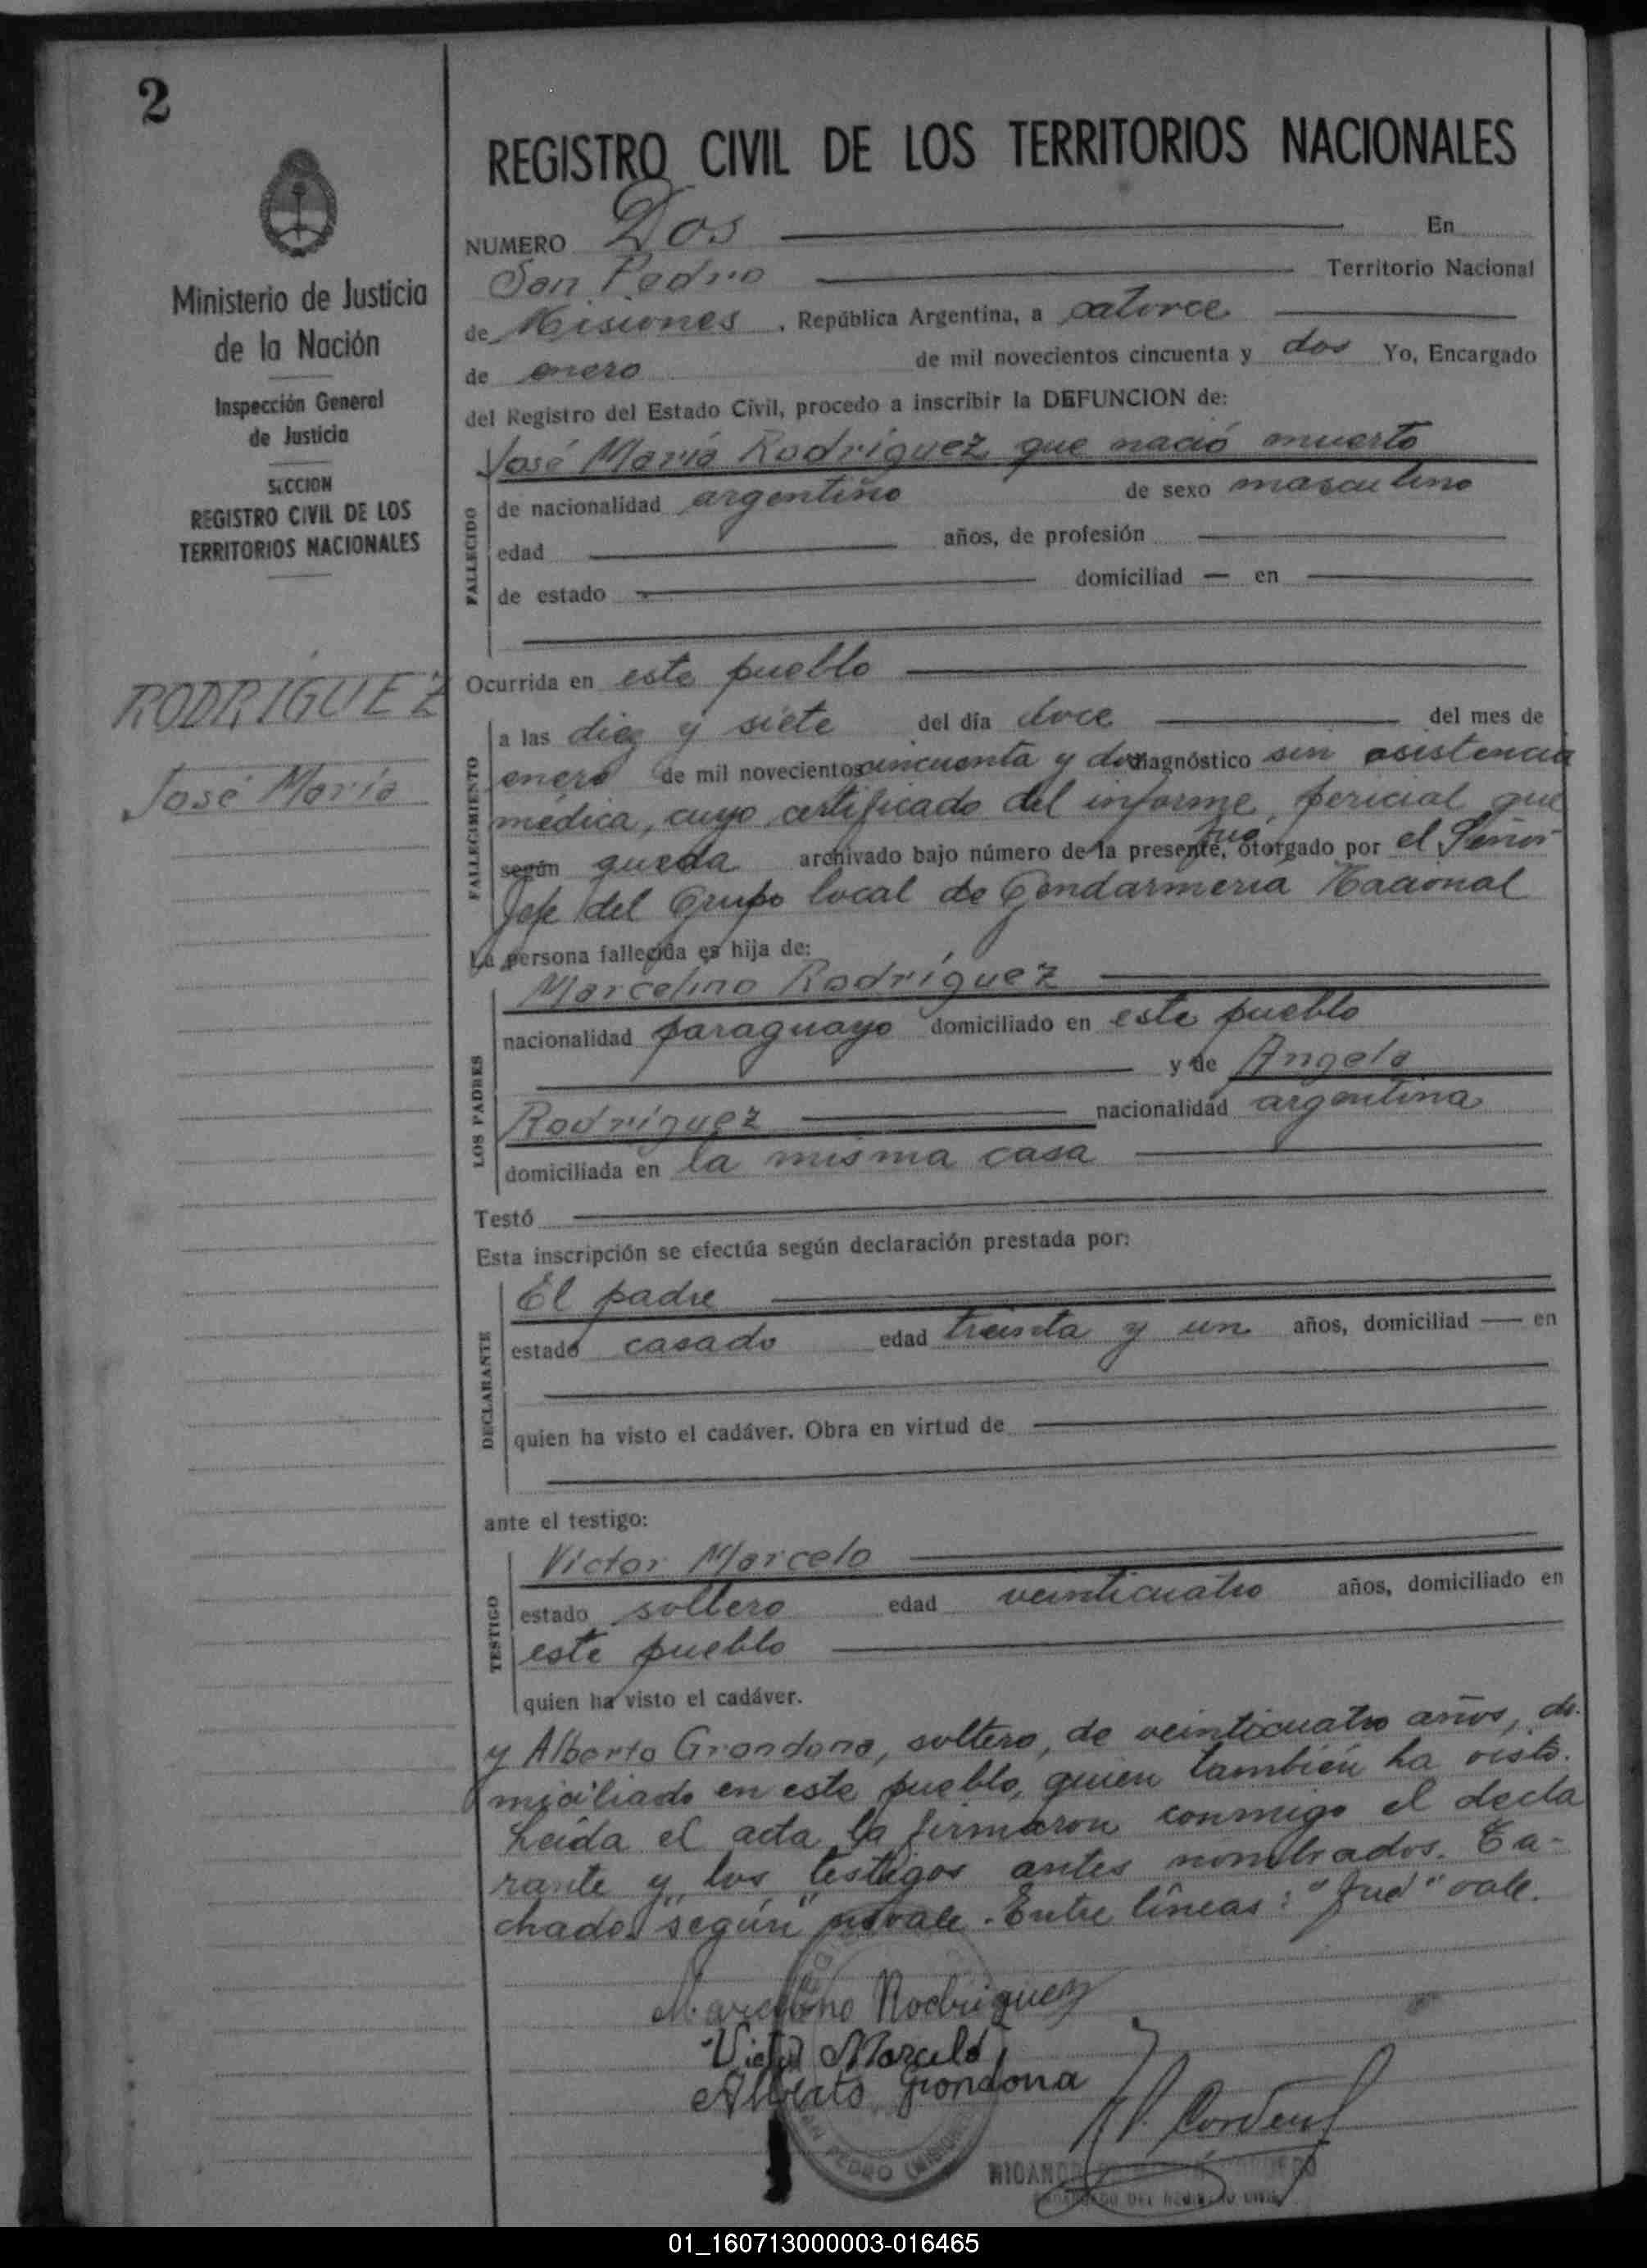 2
Ministerio de Justicia
de la Nación
Inspección General
de Justicia
SECCION
REGISTRO CIVIL DE LOS
TERRITORIOS NACIONALES
RODRIGUEZ
José María
REGISTRO CIVIL DE LOS TERRITORIOS NACIONALES
NUMERO Dos En
San Pedro Territorio Nacional
de Misiones , República Argentina, a catorce
de enero de mil novecientos cincuenta y dos Yo, Encargado
del Registro del Estado Civil, procedo a inscribir la DEFUNCION de:
José María Rodríguez que nació muerto
FALLECIDO
de nacionalidad argentino de sexo masculino
edad años, de profesión
de estado domiciliad — en
Ocurrida en este pueblo
FALLECIMIENTO
a las diez y siete del día doce del mes de
enero de mil novecientos cincuenta y dos diagnóstico sin asistencia
médica, cuyo certificado del informe pericial que
fué
según queda archivado bajo número de la presente, otorgado por el Señor
Jefe del Grupo local de Gendarmeria Nacional
La persona fallecida es hija de:
LOS PADRES
Marcelino Rodríguez
nacionalidad paraguayo domiciliado en este pueblo
y de Angela
Rodríguez nacionalidad argentina
domiciliada en la misma casa
Testó
Esta inscripción se efectúa según declaración prestada por:
DECLARANTE
El padre
estado casado edad treinta y un años, domiciliad — en
quien ha visto el cadáver. Obra en virtud de
ante el testigo:
TESTIGO
Víctor Marcelo
estado soltero edad veinticuatro años, domiciliado en
este pueblo
quien ha visto el cadáver.
y Alberto Grondona, soltero, de veinticuatro años, do-
miciliado en este pueblo, quien también ha visto.
Leída el acta la firmaron conmigo el decla
rante y los testigos antes nombrados. Ta-
chado "según" no vale. Entre líneas: "fué" vale.
Marcelino Rodriguez
Victor Marcelo
Alberto Grondona
SAN PEDRO (MISIONES)
ENCARGADO DEL REGISTRO CIVIL
01_160713000003-016465